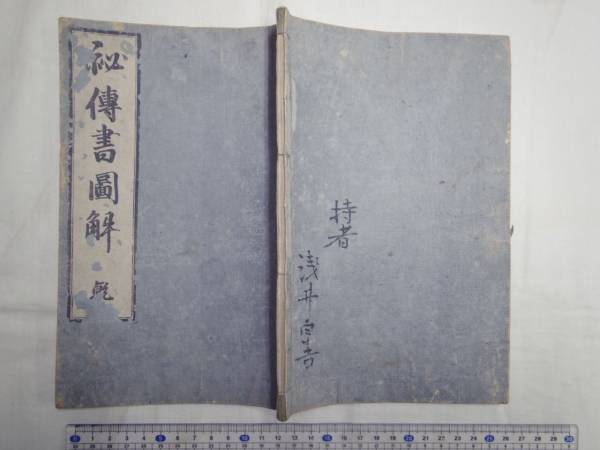 祕傳書圖解 乾
持者
淺井
0 1 2 3 4 5 6 7 8 9 10 11 12 13 14 15 16 17 18 19 20 21 22 23 24 25 26 27 28 29 30